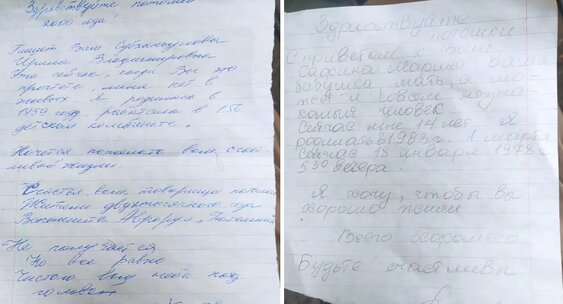 Здравствуйте потомки
2000 года!
Пишет Вам
Ирина Владимировна
Это сейчас, когда Вы это
прочтёте, меня нет в
живых. Я родилась в
1959 году, работала в 156
детском комбинате.
Хочется пожелать вам счаст
ливой жизни.
Счастья вам, товарищи потомки
Жители двухтысячного года
Вспомните
Не получается
Но все равно
Чистого вам неба над
головой
Здравствуйте
потомки
С приветом к Вам
Сафина Марина Ваша
бабушка, мать, а мо-
жет и совсем незна-
комый человек
Сейчас мне 14 лет Я
родилась 1983 г. 1 марта
Сейчас 18 января 1998 г
5 30 вечера.
Я хочу, чтобы вы
хорошо жили
Всего хорошего
Будьте счастливы